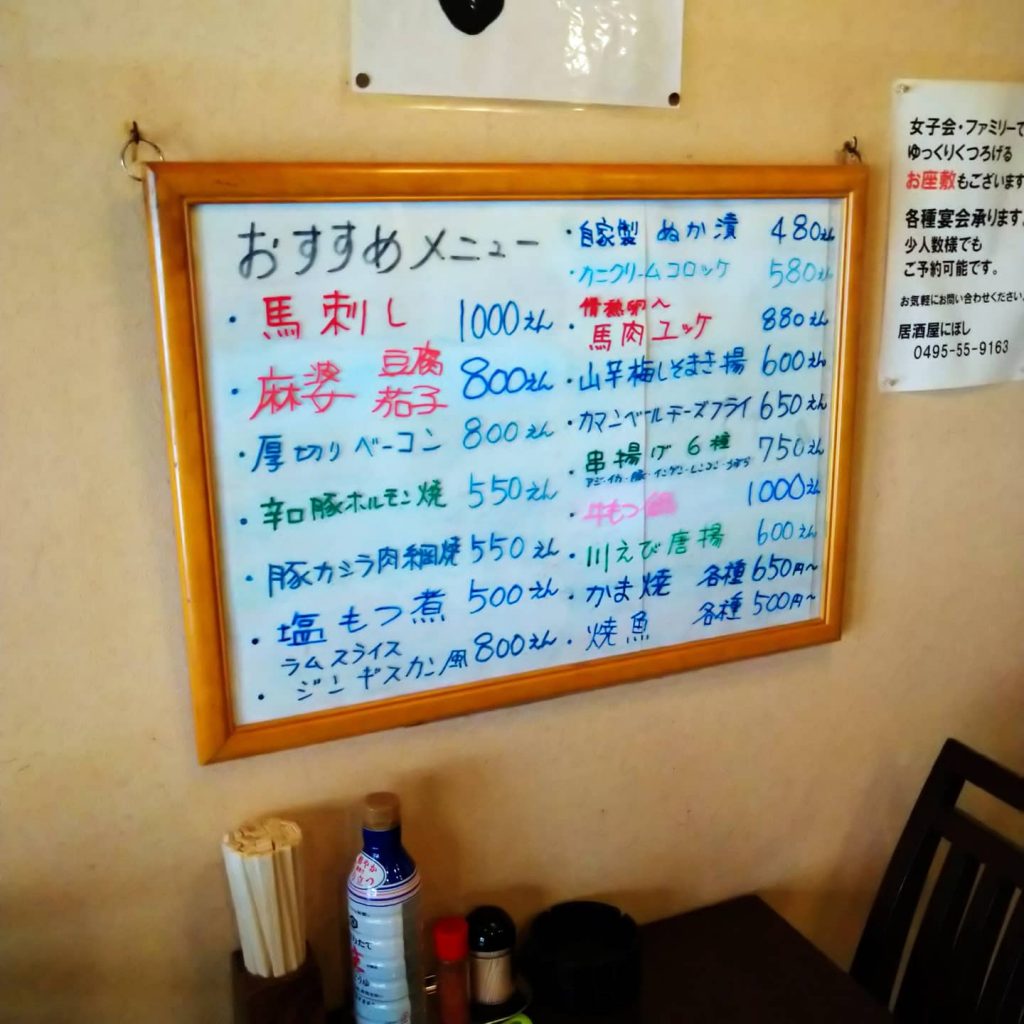 おすすめメニュー
・馬刺し 1000えん
・麻婆 豆腐 茄子 800えん
・厚切りベーコン 800えん
・辛口豚ホルモン焼 550えん
・豚カシラ肉網焼 550えん
・塩もつ煮 500えん
ラムスライス
・ジンギスカン風 800えん
・自家製 ぬか漬 480えん
・カニクリームコロッケ 580えん
情熱卵へ
・馬肉ユッケ 880えん
・山芋梅しそまき揚 600えん
・カマンベールチーズフライ 650えん
・串揚げ6種 750えん
アジ・イカ・豚・インゲン・レンコン・うずら
・牛もつ鍋 1000えん
・川えび唐揚 600えん
・かま焼 各種 650円〜
・焼魚 各種 500円〜
女子会・ファミリーで
ゆっくりくつろげる
お座敷もございます
各種宴会承ります。
少人数様でも
ご予約可能です。
お気軽にお問い合わせください。
居酒屋にぼし
0495-55-9163